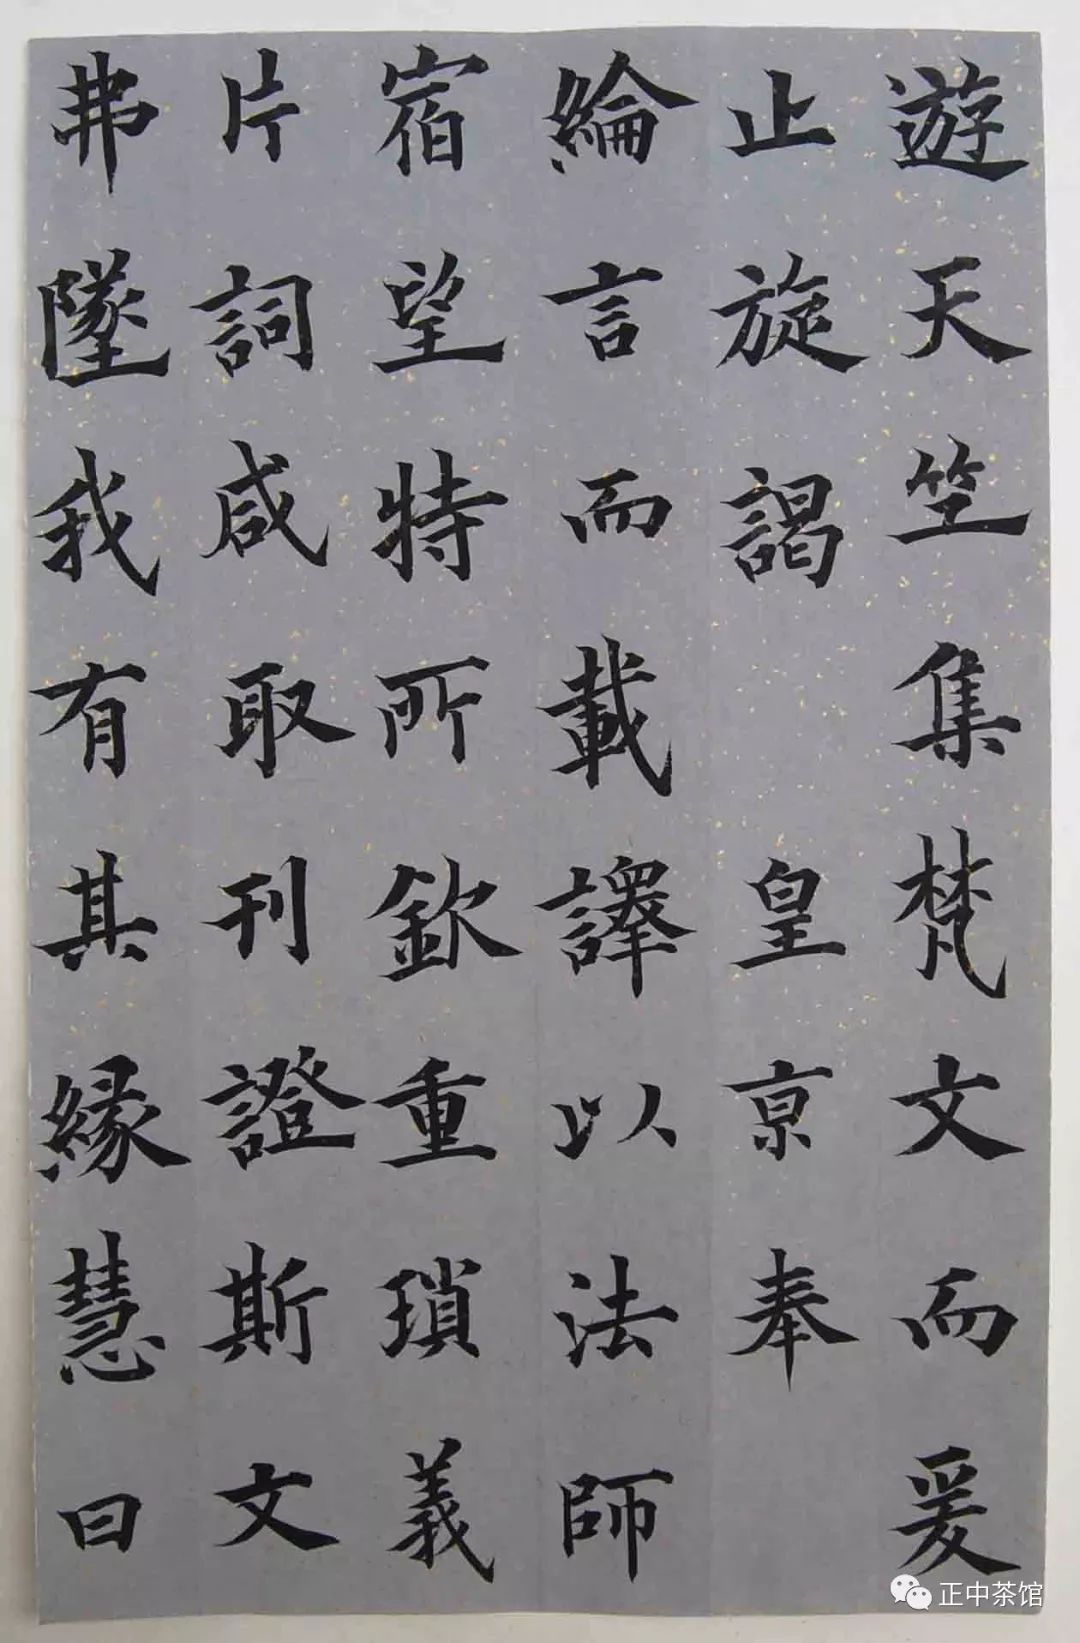 遊天竺集梵文而爰
止旋謁皇京奉
綸言而載譯以法師
宿望特所欽重瑣義
片詞咸取刊證斯文
弗墜我有其緣慧日
正中茶馆